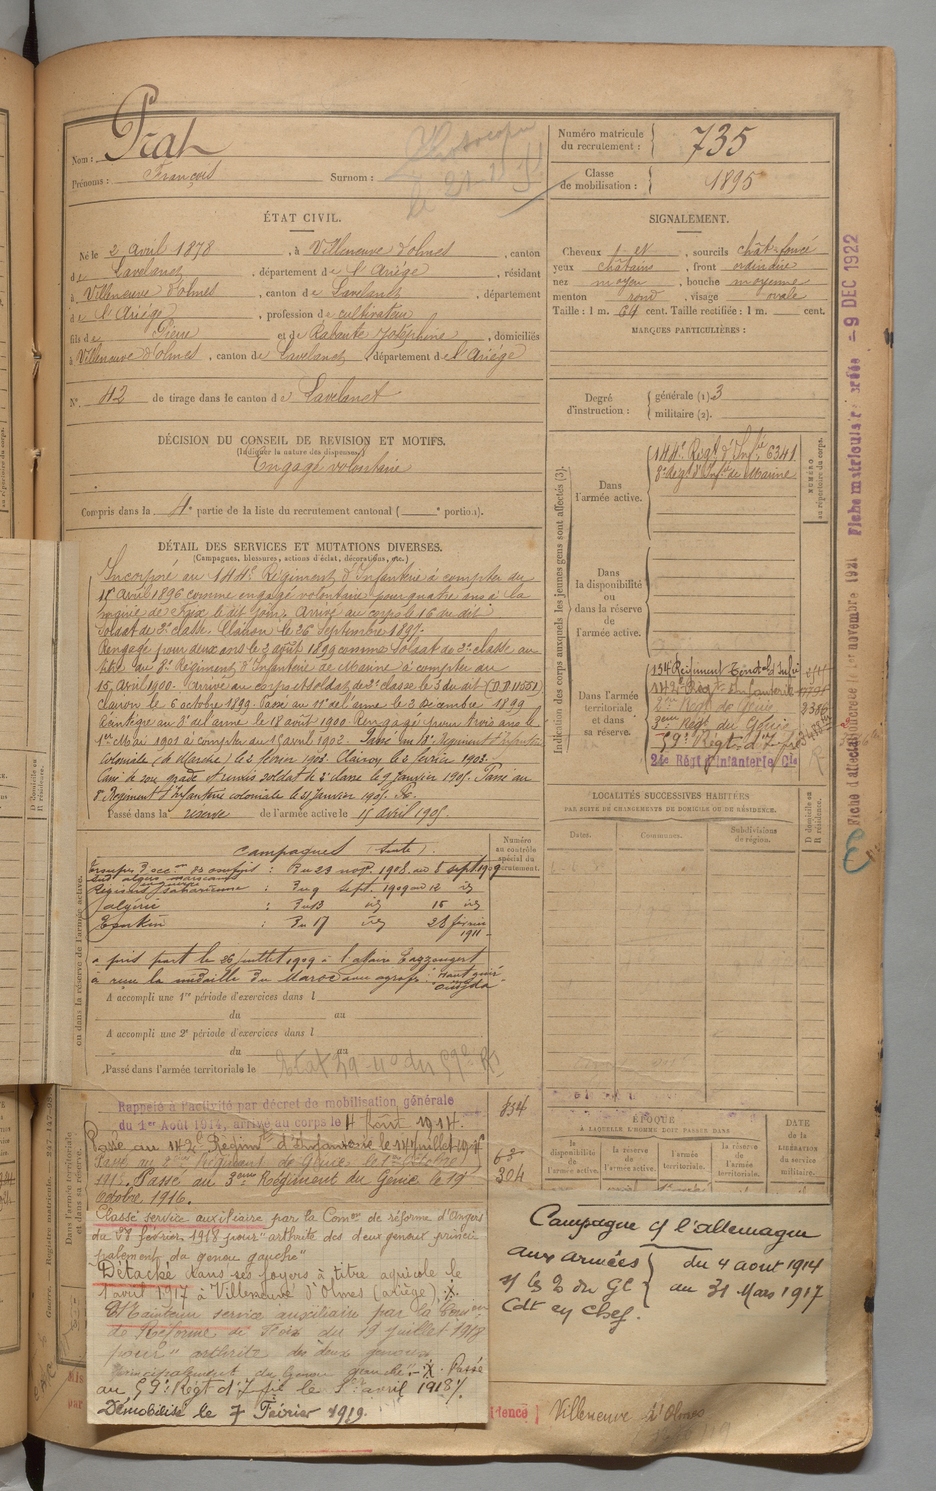 Nom : Prat
Prénoms : François Surnom :
Numéro matricule du recrutement : 735
Classe de mobilisation : 1895
ÉTAT CIVIL.
Né le 2 avril 1878, à Villeneuve d'olmes, canton
de Lavelanet, département de l'Ariége, résidant
à Villeneuve d'olmes, canton de Lavelanet, département
de l'Ariége, profession de cultivateur
fils de Pierre et de Rabaute Joséphine, domiciliés
à Villeneuve d'olmes, canton de Lavelanet, département de l'Ariége
N° 42 de tirage dans le canton de Lavelanet
SIGNALEMENT.
Cheveux , sourcils chât. foncé
yeux châtains, front ordinaire
nez moyen, bouche moyenne
menton rond, visage ovale
Taille : 1 m. 64 cent. Taille rectifiée : 1 m. cent.
MARQUES PARTICULIÈRES :
Degré d'instruction : générale (1) 3
militaire (2).
DÉCISION DU CONSEIL DE REVISION ET MOTIFS.
(Indiquer la nature des dispenses)
Engagé volontaire
Compris dans la 4e partie de la liste du recrutement cantonal ( e portion).
DÉTAIL DES SERVICES ET MUTATIONS DIVERSES.
(Campagnes, blessures, actions d'éclat, décorations, etc.)
Incorporé au 144e Régiment d'Infanterie à compter du
Avril 1896 comme engagé volontaire pour quatre ans à la
mairie de Foix le dit jour. Arrivé au corps le 16 du dit
Soldat de 2e classe. Clairon le 26 Septembre 1897.
Rengagé pour deux ans le 3 août 1899 comme Soldat de 2e classe au
titre du 8e Régiment d'Infanterie de Marine à compter du
15 Avril 1900. Arrivé au corps et soldat de 2e classe le 3 du dit (D.D. 11551)
clairon le 6 octobre 1899. Passé au 11e de l'arme le 3 Décembre 1899
Réintégré au 8e de l'arme le 18 août 1900. Rengagé pour trois ans le
1er Mai 1901 à compter du 15 avril 1902. Passé au Régiment d'Infanterie
Coloniale (de Marche) le 2 février 1903. Clairon le 3 février 1903.
Cassé de son grade et remis soldat de 2e classe le 9 Janvier 1905. Passé au
8e Régiment d'Infanterie coloniale le 21 Janvier 1905.
Passé dans la réserve de l'armée active le 15 avril 1905.
Indication des corps auxquels les jeunes gens sont affectés (3).
NUMÉRO au répertoire du corps.
Dans l'armée active.
144e Regt d'Infie 6341
8e Régt d'Inft de Marine
Dans la disponibilité ou dans la réserve de l'armée active.
Dans l'armée territoriale et dans sa réserve.
134 Régiment Territ d'Infie
142e Regt d'Infanterie
2e Régt de Génie 2336
3eme Regt du Génie
59e Régt d'I
24e Régt d'Infanterie Cle
LOCALITÉS SUCCESSIVES HABITÉES
PAR SUITE DE CHANGEMENTS DE DOMICILE OU DE RÉSIDENCE.
Dates. Communes. Subdivisions de région. D domicile ou R résidence.
Campagnes (suite)
Numéro au contrôle spécial du recrutement.
: Du 23 nov. 1908 au 8 sept 1909
Régions sahariennes : Du 9 sept. 1909 au 12
Algérie : Du 13 16
Tonkin : Du 17 28 février 1911
a pris part le 26 juillet 1909 à l'affaire
a reçu la médaille du Maroc avec agrafe "Oudjda"
A accompli une 1re période d'exercices dans l
du au
A accompli une 2e période d'exercices dans l
du au
Passé dans l'armée territoriale le
Rappelé à l'activité par décret de mobilisation générale
du 1er Août 1914, arrivé au corps le 4 Août 1914.
Passé au 142e Régimt d'Infanterie le 14 Juillet 1915
Passé au 2eme Régiment de Génie le 1er Octobre
1915. Passé au 3eme Régiment du Génie le 19
Octobre 1916.
Classé service auxiliaire par la Comon de réforme d'Angers
du 28 février 1918 pour "arthrite des deux genoux princi
palement du genou gauche"
Détaché dans ses foyers à titre agricole le
1 avril 1917 à Villeneuve d'Olmes (Ariège)
Maintenu service auxiliaire par la Comon
de Réforme de Foix du 19 juillet 1918
pour "arthrite des deux genoux
principalement du genou gauche". Passé
au 59e Régt d'I le 1er avril 1918
Démobilisé le 7 Février 1919.
834
304
ÉPOQUE
À LAQUELLE L'HOMME DOIT PASSER DANS
la disponibilité de l'armée active. la réserve de l'armée active. l'armée territoriale. la réserve de l'armée territoriale.
DATE DE LA LIBÉRATION DU SERVICE MILITAIRE.
Campagne c/ l'allemagne
aux armées du 4 aout 1914
s/ le D du Gl au 31 Mars 1917
Cdt en chef.
Villeneuve d'Olmes
Fiche d'affectation 1er novembre 1921 Fiche matricule - 9 DEC 1922